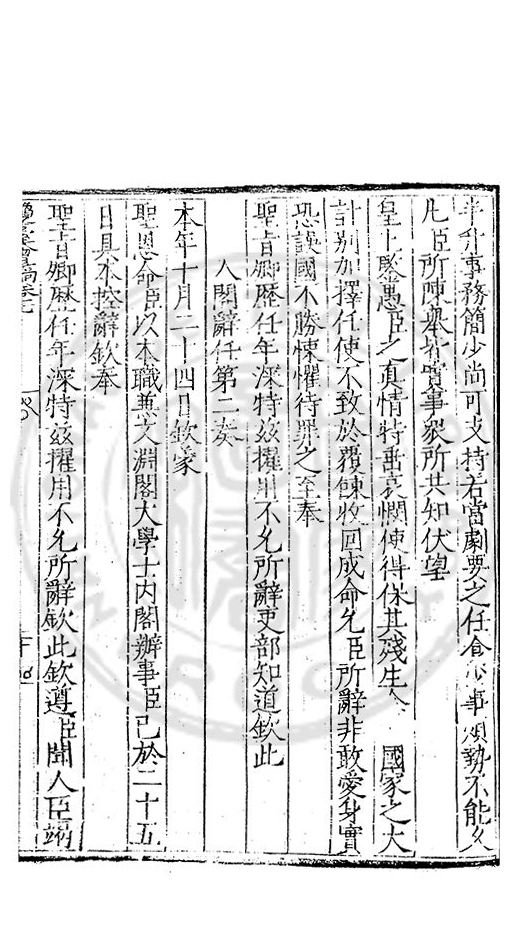 半升事務簡少尚可支持若當劇要之任食少事煩勢不能久
凡臣所陳舉皆實事衆所共知伏望
皇上鑒愚臣之真情特垂哀憫使得保其殘生 國家之大
計别加擇任使不致於覆餗收回成命允臣所辭非敢愛身實
恐誤國不勝悚懼待罪之至奉
聖旨卿歷任年深特兹擢用不允所辭吏部知道欽此
入閣辭任第二奏
本年十月二十四日欽蒙
聖恩命臣以本職兼文淵閣大學士内閣辦事臣已於二十五
日具本控辭欽奉
聖旨卿歷任年深特兹擢用不允所辭欽此欽遵臣聞人臣竭